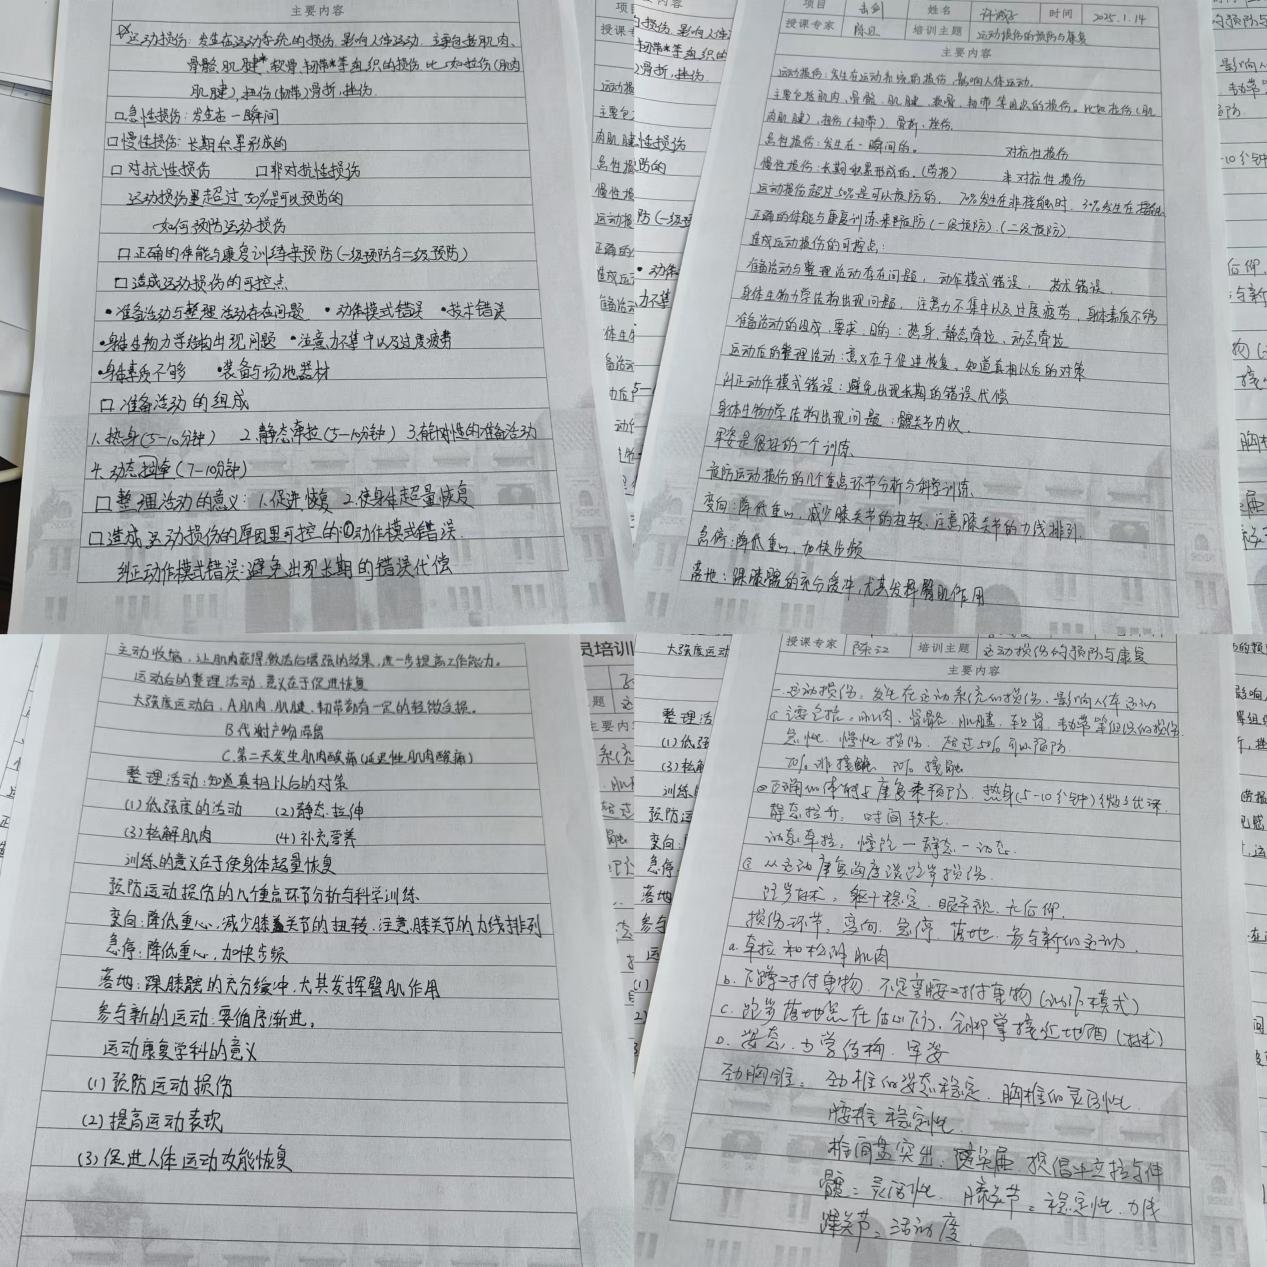 主要内容
运动损伤:发生在运动系统的损伤,影响人体运动,主要包括肌肉、
骨骼,肌腱,软骨,韧带等组织的损伤,比如拉伤(肌肉
肌腱),扭伤(韧带)骨折,挫伤.
□急性损伤:发生在一瞬间
□慢性损伤:长期积累形成的
□对抗性损伤 □非对抗性损伤
运动损伤量超过50%是可以预防的
如何预防运动损伤
□正确的体能与康复训练来预防(一级预防与二级预防)
□造成运动损伤的可控点
•准备活动与整理活动存在问题 •动作模式错误 •技术错误
•身体生物力学结构出现问题 •注意力不集中以及过度疲劳
•身体素质不够 •装备与场地器材
□准备活动的组成
1.热身(5-10分钟) 2.静态牵拉(5-10分钟) 3.有针对性的准备活动
4.动态拉牵(7-10分钟)
□整理活动的意义:1.促进恢复 2.使身体超量恢复
□造成运动损伤的原因里可控的①动作模式错误.
纠正动作模式错误:避免出现长期的错误代偿
项目 击剑 姓名 时间 2025.1.14
授课专家 培训主题 运动损伤的预防与康复
主要内容
运动损伤:发生在运动系统的损伤,影响人体运动.
主要包括肌肉,骨骼,肌腱,软骨,韧带等组织的损伤.比如拉伤(肌
肉肌腱),扭伤(韧带)骨折,挫伤.
急性损伤:发生在一瞬间的. 对抗性损伤
慢性损伤:长期积累形成的.(劳损) 非对抗性损伤
运动损伤超过50%是可以预防的. 70%发生在非接触时,30%发生在接触
正确的体能与康复训练来预防(一级预防).(二级预防)
造成运动损伤的可控点:
准备活动与整理活动存在问题,动作模式错误,技术错误.
身体生物力学结构出现问题,注意力不集中以及过度疲劳,身体素质不够
准备活动的组成,要求,目的:热身,静态牵拉,动态牵拉
运动后的整理活动:意义在于促进恢复,知道真相以后的对策
纠正动作模式错误:避免出现长期的错误代偿
身体生物力学结构出现问题:髋关节内收.
军姿是很好的一个训练.
预防运动损伤的几个重点环节分析与科学训练.
变向:降低重心,减少膝关节的扭转,注意膝关节的力线排列.
急停:降低重心,加快步频
落地:踝膝髋的充分缓冲,尤其发挥臀肌作用
主动收缩,让肌肉获得激活后增强的效果,进一步提高工作能力.
运动后的整理活动,意义在于促进恢复
大强度运动后,A肌肉,肌腱,韧带都有一定的轻微受损。
B代谢产物滞留
C.第二天发生肌肉酸痛(延迟性肌肉酸痛)
整理活动:知道真相以后的对策
(1)低强度的活动 (2)静态拉伸
(3)松解肌肉 (4)补充营养
训练的意义在于使身体超量恢复
预防运动损伤的几个重点环节分析与科学训练
变向:降低重心,减少膝关节的扭转,注意膝关节的力线排列
急停:降低重心,加快步频
落地:踝膝髋的充分缓冲,尤其发挥臀肌作用
参与新的运动:要循序渐进,
运动康复学科的意义
(1)预防运动损伤
(2)提高运动表现
(3)促进人体运动功能恢复
授课专家 培训主题 运动损伤的预防与康复
主要内容
一.运动损伤:发生在运动系统的损伤,影响人体运动
主要包括:肌肉、骨骼、肌腱、软骨、韧带等组织的损伤
急性、慢性损伤,超过50%可以预防.
70%非接触 接触
正确的体能与康复来预防,热身(5-10分钟)
静态拉升,时间较长.
动态牵拉,慢跑-静态-动态.
③从运动康复角度谈跑步损伤.
跑步技术:躯干稳定,眼平视,后仰.
损伤环节:变向、急停、落地、参与新的运动.
a.牵拉和松解肌肉
b.下蹲对付重物,不是弯腰对付重物
c.跑步落地点在 下方,全脚掌接近地面(技术)
D.姿态,力学结构,军姿
劲胸锥:劲椎的姿态稳定,胸椎的灵活性
腰椎稳定性
椎间盘突出
髋=灵活性 膝关节=稳定性,力线
踝关节=活动度.